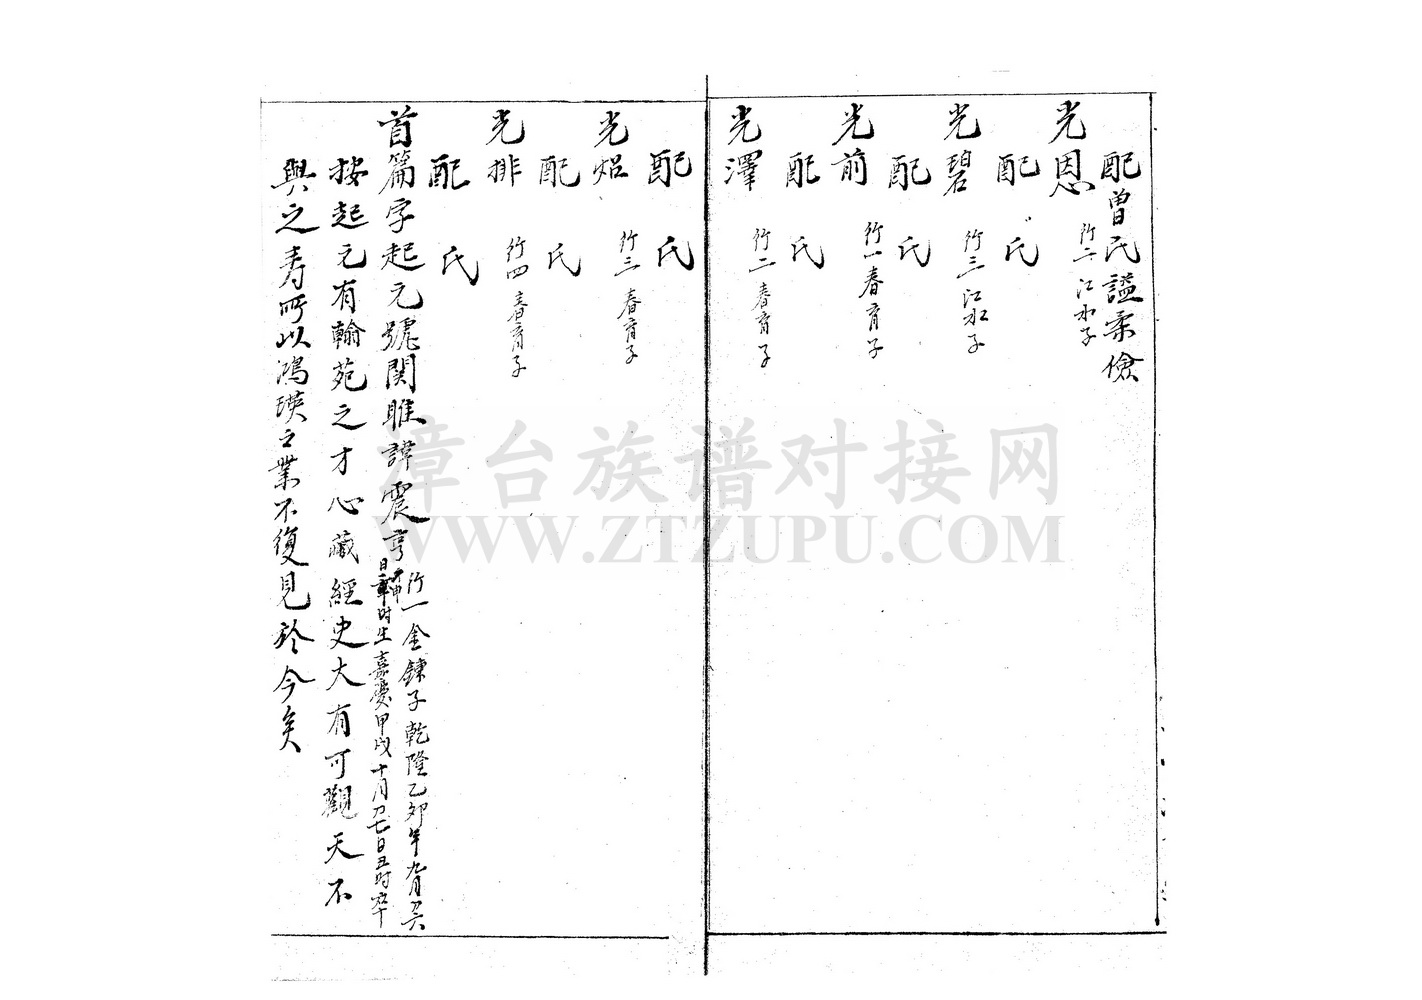 配曾氏謚柔儉
光恩 行二 江水子
配 氏
光碧 行三 江水子
配 氏
光前 行一 春育子
配 氏
光澤 行二 春育子
配 氏
光炤 行三 春育子
配 氏
光排 行四 春育子
配 氏
首篇字起元號関雎諱震亨
行一金鍊子乾隆乙卯年九月初六
日 時生嘉慶甲戌十月初七日丑时卒
按起元有翰苑之才心藏經史大有可觀天不
與之寿所以鴻瑛之業不復見於今矣
漳台族谱对接网
WWW.ZTZUPU.COM